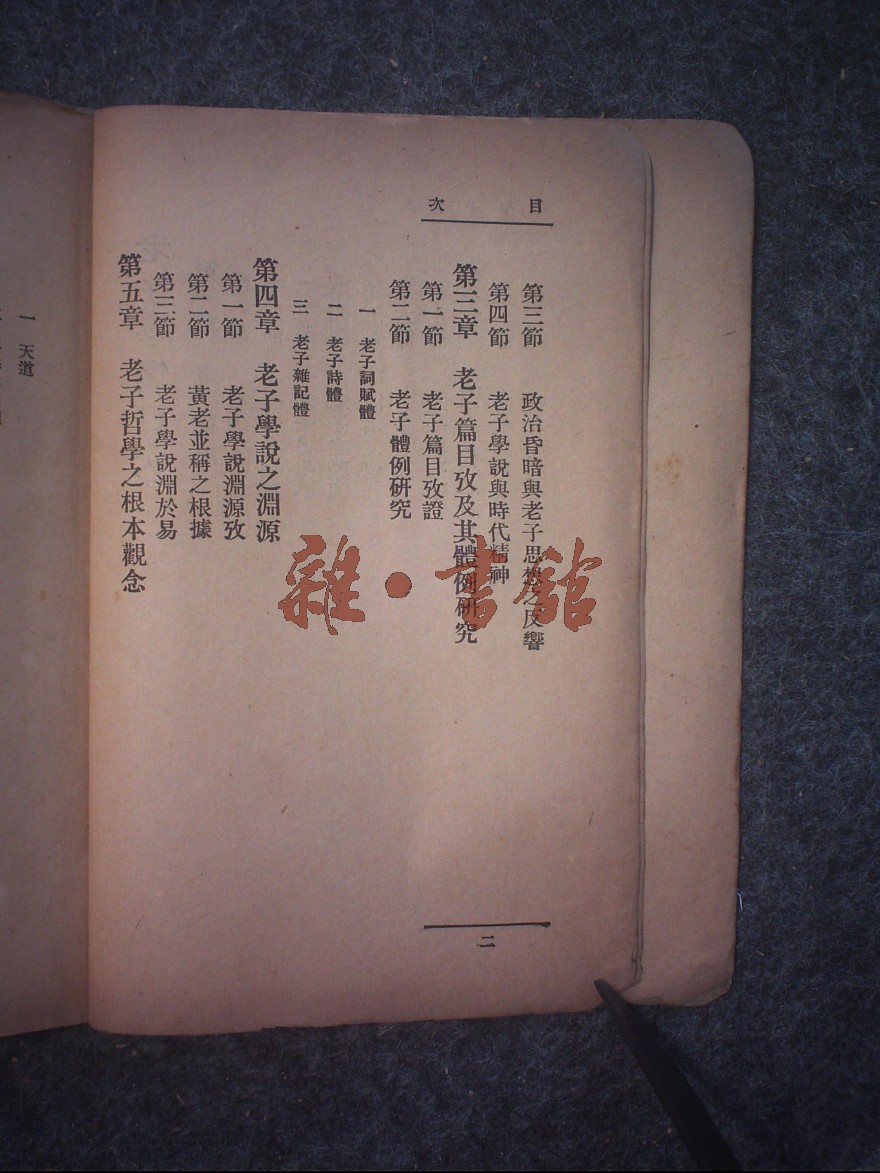 目次
第三節 政治昏暗與老子思想之反響
第四節 老子學說與時代精神
第三章 老子篇目攷及其體例研究
第一節 老子篇目攷證
第二節 老子體例研究
一 老子詞賦體
二 老子詩體
三 老子雜記體
第四章 老子學說之淵源
第一節 老子學說淵源攷
第二節 黃老並稱之根據
第三節 老子學說淵於易
第五章 老子哲學之根本觀念
二
一 天道
雜·書館